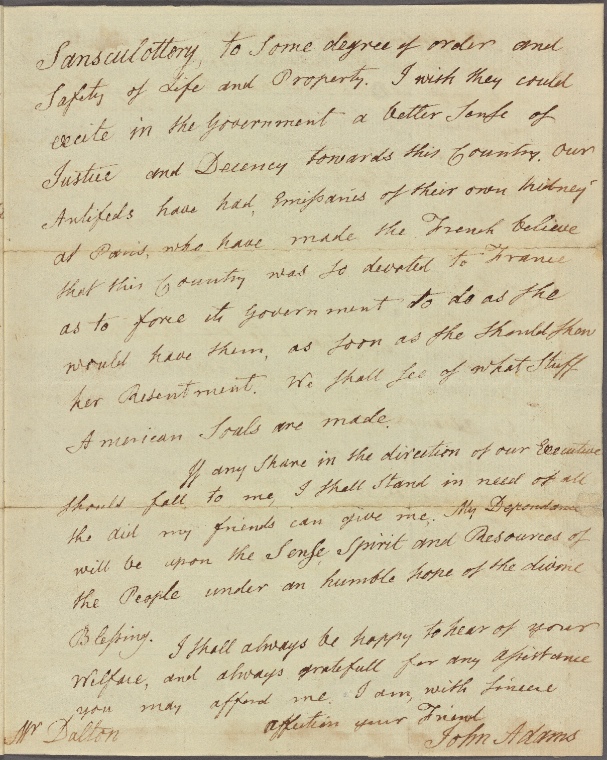 Sansculottory, to Some degree of order and
Safety of Life and Property. I wish they could
excite in the Government a better Sense of
Justice and Decency towards this Country. Our
Antifeds have had, Emissaries of their own Kidney
at Paris, who have made the French believe
that this Country was so devoted to France
as to force its Government to do as she
would have them, as soon as she should shew
her Resentment. We shall see of what Stuff
American Souls are made.
If any Share in the direction of our Executive
should fall to me, I shall Stand in need of all
the aid my friends can give me. My Dependance
will be upon the Sense, Spirit and Resources of
the People under an humble hope of the divine
Blessing.
I shall always be happy to hear of your
Welfare, and always gratefull for any assistance
you may afford me. I am, with Sincere
affection your Friend
John Adams
Mr Dalton